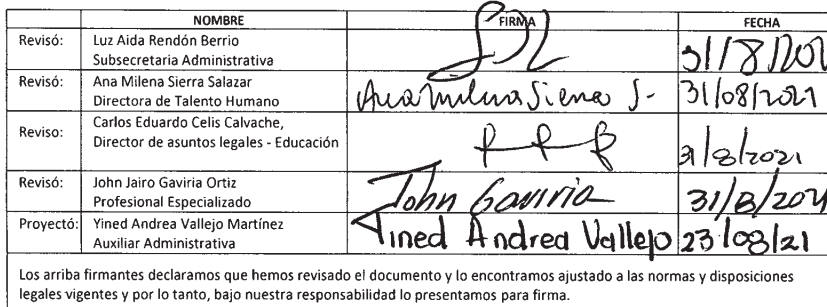 NOMBRE FIRMA FECHA
Revisó: Luz Aida Rendón Berrio
Subsecretaria Administrativa 31/8/202
Revisó: Ana Milena Sierra Salazar
Directora de Talento Humano Ana Milena Sierra S- 31/08/2021
Reviso: Carlos Eduardo Celis Calvache,
Director de asuntos legales - Educación 31/8/2021
Revisó: John Jairo Gaviria Ortiz
Profesional Especializado John Gaviria 31/8/2021
Proyectó: Yined Andrea Vallejo Martínez
Auxiliar Administrativa Yined Andrea Vallejo 23/08/21
Los arriba firmantes declaramos que hemos revisado el documento y lo encontramos ajustado a las normas y disposiciones
legales vigentes y por lo tanto, bajo nuestra responsabilidad lo presentamos para firma.